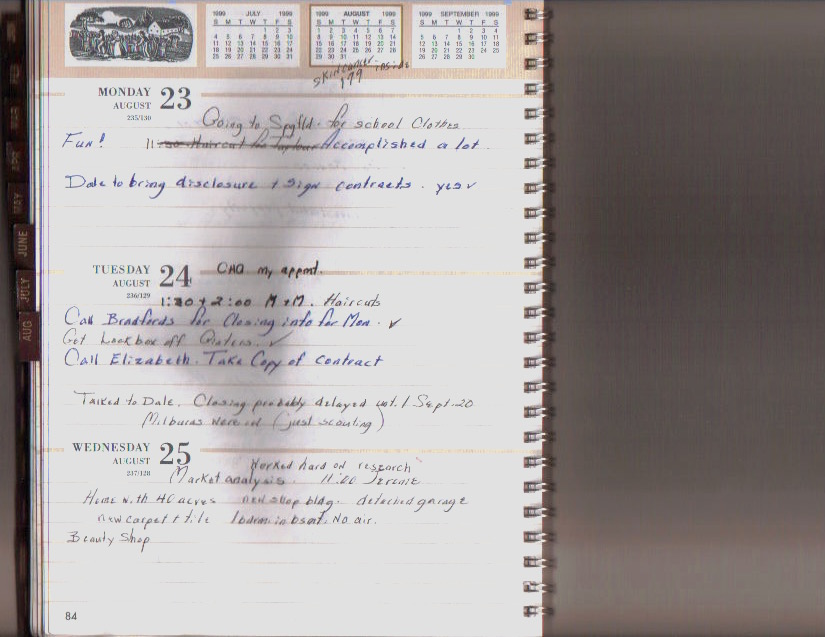 1999 JULY 1999
S M T W T F S
1 2 3
4 5 6 7 8 9 10
11 12 13 14 15 16 17
18 19 20 21 22 23 24
25 26 27 28 29 30 31
1999 AUGUST 1999
S M T W T F S
1 2 3 4 5 6 7
8 9 10 11 12 13 14
15 16 17 18 19 20 21
22 23 24 25 26 27 28
29 30 31
1999 SEPTEMBER 1999
S M T W T F S
1 2 3 4
5 6 7 8 9 10 11
12 13 14 15 16 17 18
19 20 21 22 23 24 25
26 27 28 29 30
skin cancer inside
179
MONDAY 23
AUGUST
235/130
Going to Spgfld. for school Clothes
Fun! Haircut Accomplished a lot
Dale to bring disclosure + sign contracts. yes ✓
TUESDAY 24
AUGUST
236/129
CHQ my appmt.
1:30 + 2:00 M + M. Haircuts
Call Bradfords for Closing info for Mon. ✓
Get Lockbox off ✓
Call Elizabeth. Take Copy of contract
Talked to Dale. Closing probably delayed until Sept. 20
Milburns were in (just scouting)
WEDNESDAY 25
AUGUST
237/128
Worked hard on research
Market analysis 11:00
Home with 40 acres new shop bldg. detached garage
new carpet + tile 1 bdrm in bsmt. No air.
Beauty Shop
84
MAY
JUNE
JULY
AUG